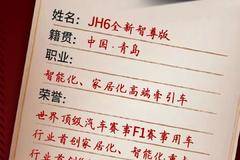 姓名：JH6全新智尊版
籍贯：中国·青岛
职业：
智能化、家居化高端牵引车
荣誉：
世界顶级汽车赛事F1赛事用车
行业首创家居化、智能化
行业首